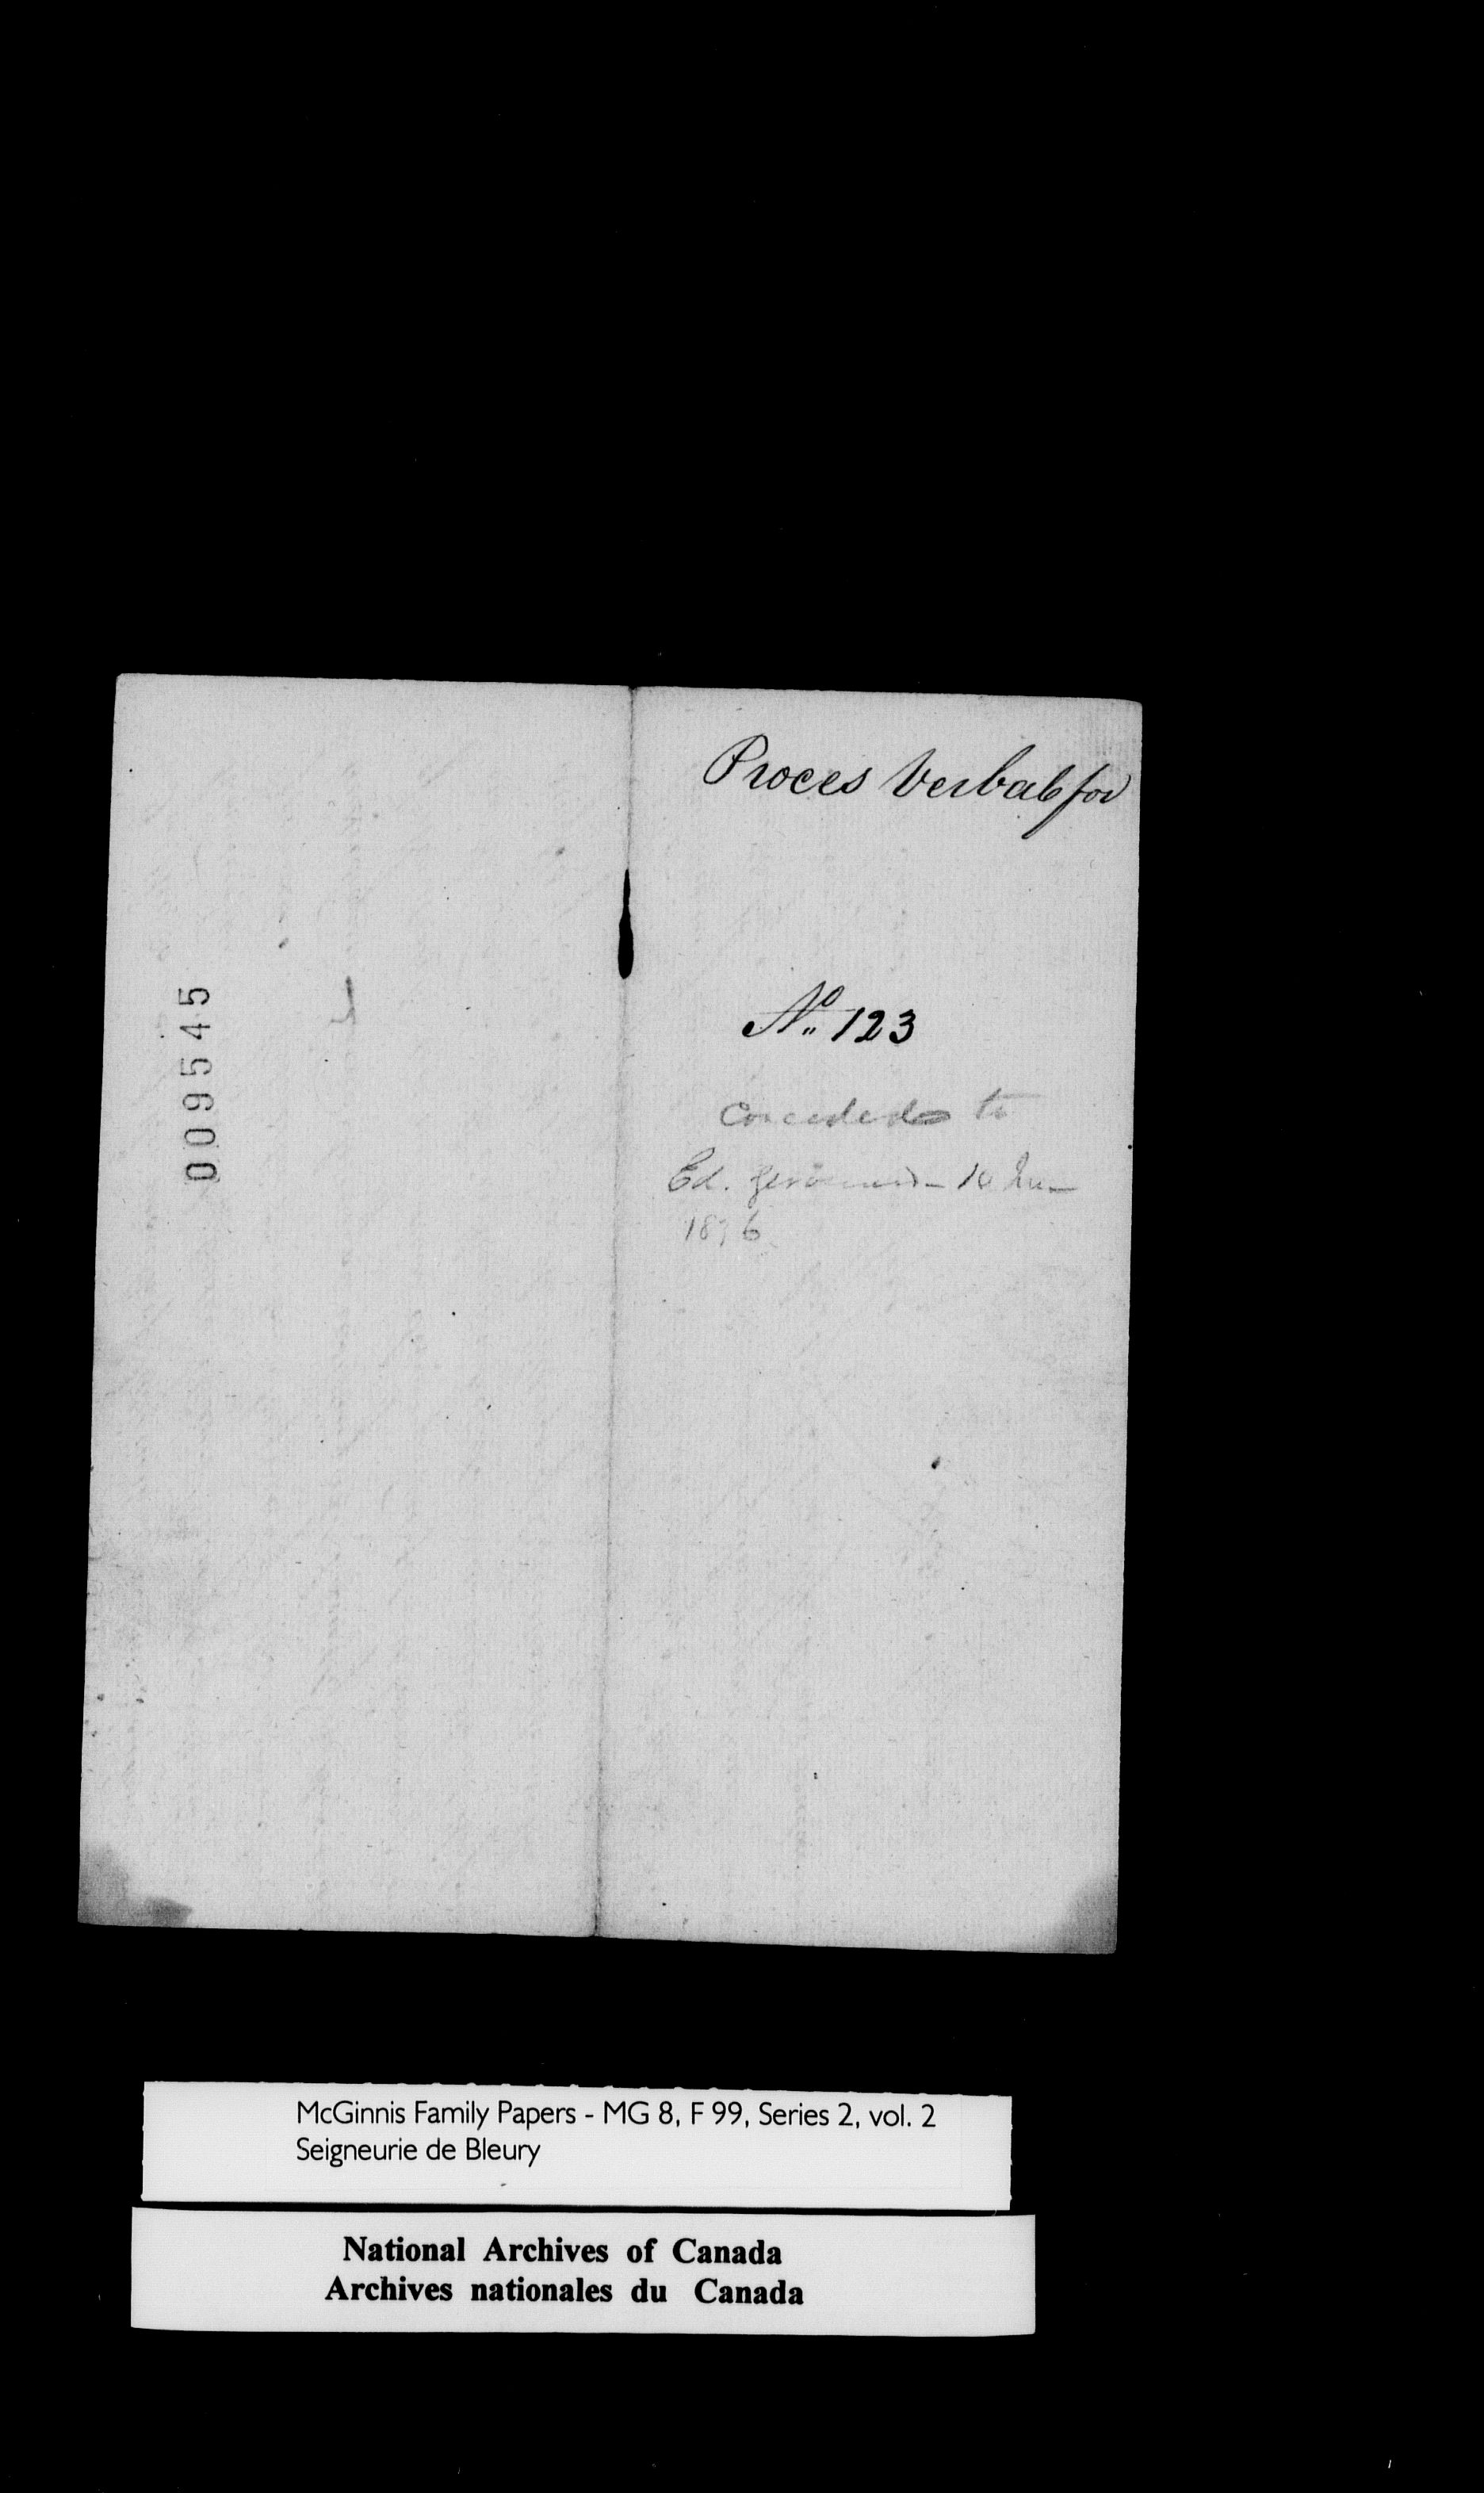 Proces Verbal for
No. 123
Conceded to
Ed.
009545
McGinnis Family Papers - MG 8, F 99, Series 2, vol. 2
Seigneurie de Bleury
National Archives of Canada
Archives nationales du Canada